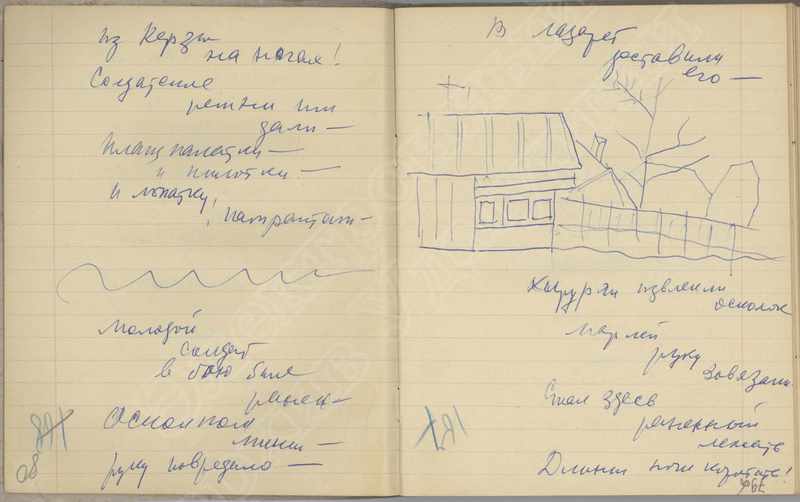 из Керзы
на ногах!
Солдатские
ремни им
дали —
Плащ палатки —
и пилотки —
И лопатку,
Молодой
солдат
в бою был
ранен —
Осколком
мины —
руку повредило —
В лазарет
доставили
его —
Хирурги извлекли
осколок
Марлей
руку
завязали
Стал здесь
раненный
лежать
Длинны ночи коротать!